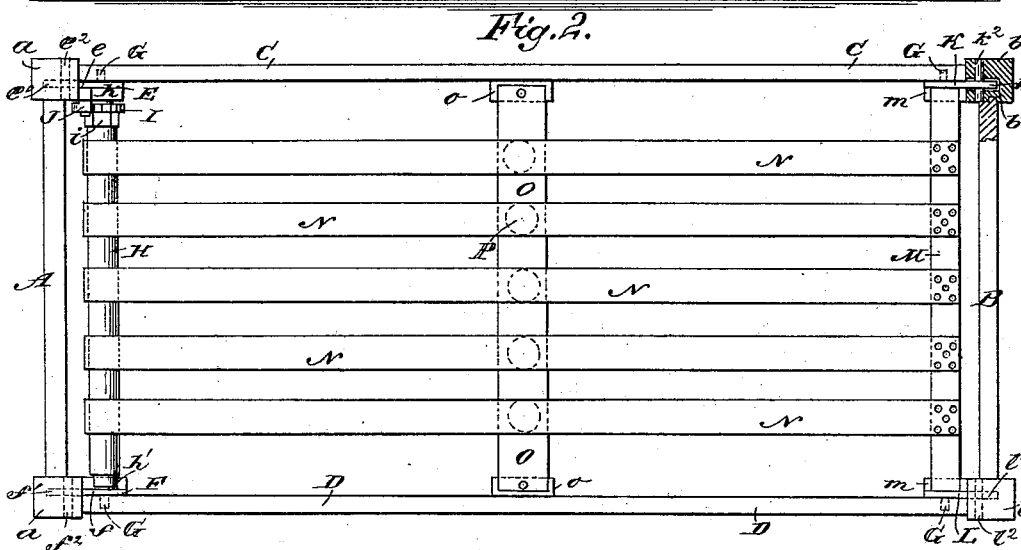 Fig. 2.
a e² e G C C G K k² b
e' h E o m b
J I
i
N
O
N
P
H M
A N B
N
N
h' O
f' F D o m l'
a f² f G D G L l²